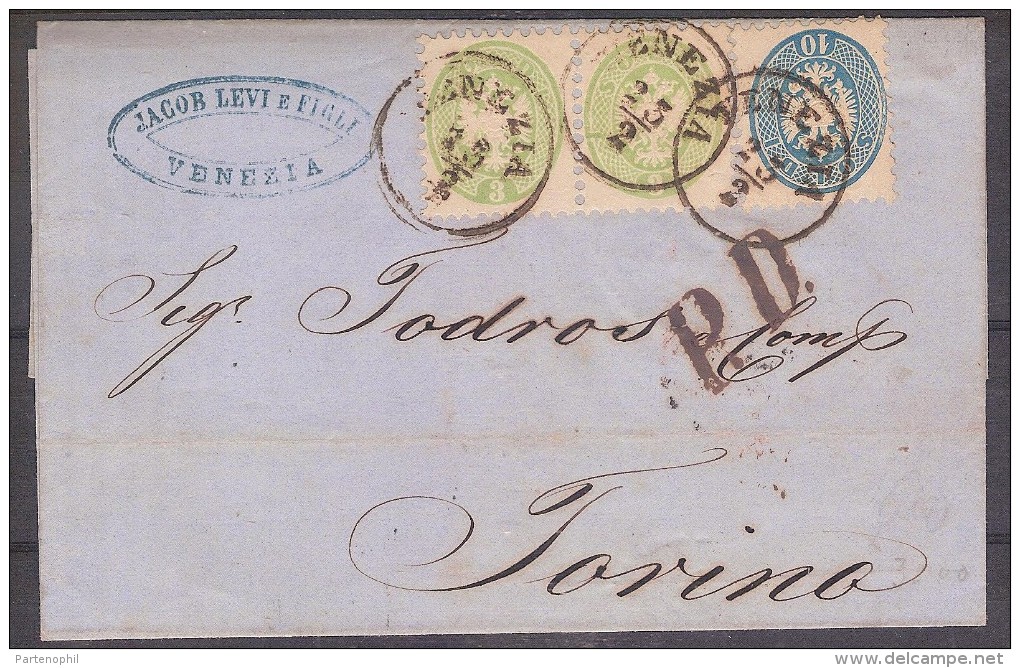 JACOB LEVI E FIGLI
VENEZIA
VENEZIA
3
VENEZIA
10
VENEZIA
P.D.
Sigr. Todros e Comp
Torino
Partenophil
www.delcampe.net